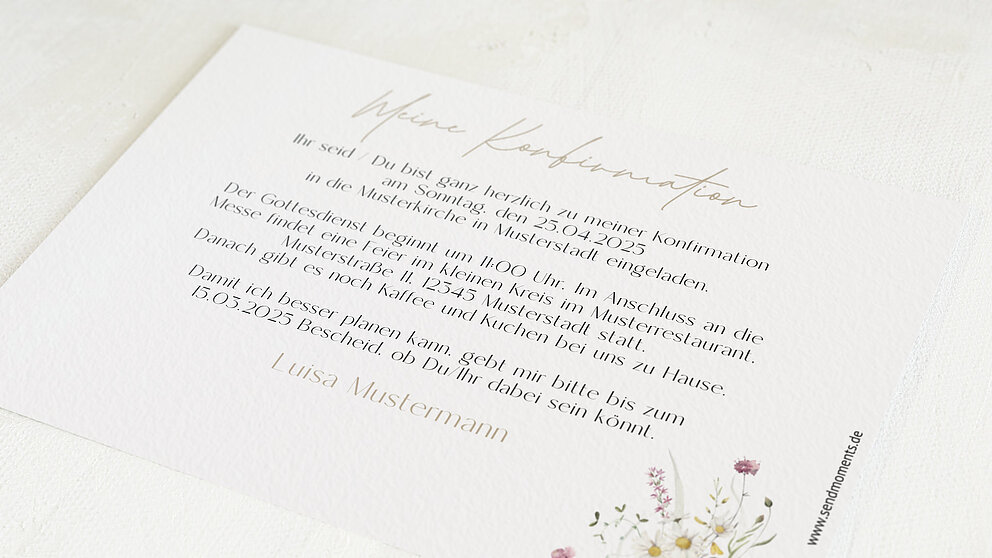 Meine Konfirmation
Ihr seid / Du bist ganz herzlich zu meiner Konfirmation
am Sonntag, den 25.04.2025
in die Musterkirche in Musterstadt eingeladen.
Der Gottesdienst beginnt um 11:00 Uhr. Im Anschluss an die
Messe findet eine Feier im kleinen Kreis im Musterrestaurant,
Musterstraße 11, 12345 Musterstadt statt.
Danach gibt es noch Kaffee und Kuchen bei uns zu Hause.
Damit ich besser planen kann, gebt mir bitte bis zum
15.03.2025 Bescheid, ob Du/Ihr dabei sein könnt.
Luisa Mustermann
www.sendmoments.de